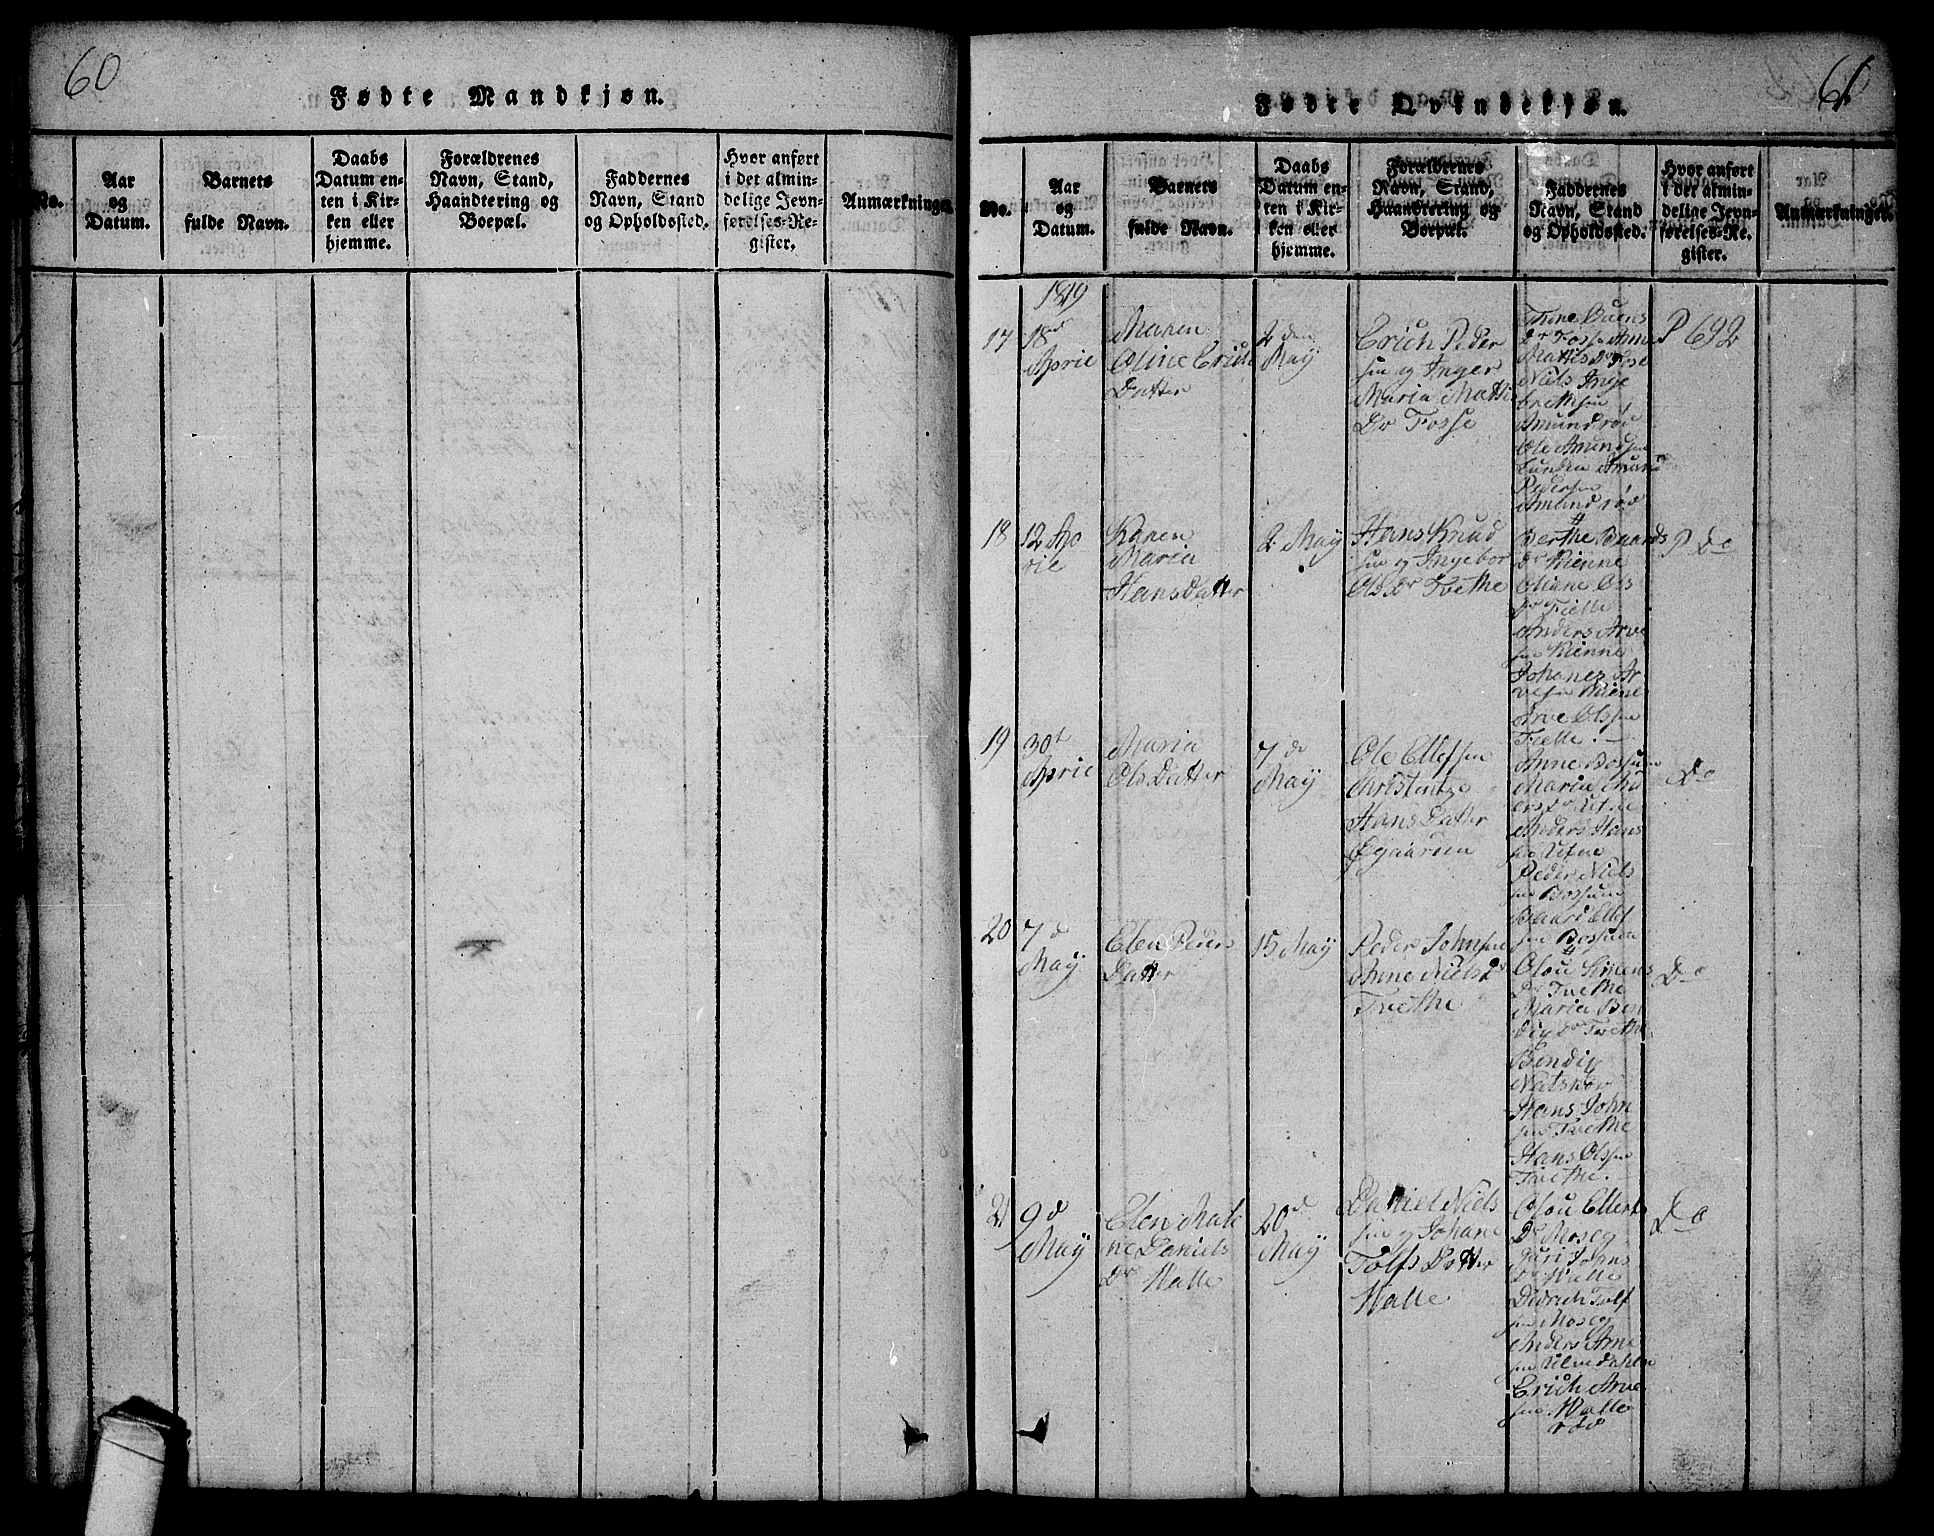 60
Fødte Mandkjøn.
No.
Aar
og
Datum.
Barnets
fulde Navn.
Daabs
Datum en-
ten i Kir-
ken eller
hjemme.
Forældrenes
Navn, Stand,
Haandtering og
Boepæl.
Faddernes
Navn, Stand
og Opholdssted.
Hvor anført
i det almin-
delige Jevn-
førelses-Re-
gister.
Anmærkninger.
61
Fødte Qvindekjøn.
No.
Aar
og
Datum.
Barnets
fulde Navn.
Daabs
Datum en-
ten i Kir-
ken eller
hjemme.
Forældrenes
Navn, Stand,
Haandtering og
Boepæl.
Faddernes
Navn, Stand
og Opholdssted.
Hvor anført
i det almin-
delige Jevn-
førelses-Re-
gister.
Anmærkninger.
1819
17
18d
Aprie
Maren
Oline Erich
Datter
2 den
May
Erich Peder
sen og Inger
Maria Matti
Dr Fosse
Dr Fosse Anne
Mattis Dr Fosse
Niels Inge
bretsen
Amundrøe
Ole Amundsen
Lunden Amund
Pedersen
Amundrød
P 692
18
12 Ap
rie
Karen
Maria
Hansdatter
2 May
Hans Knud
sen og Ingebor
Olsdr Tvethe
Berthe Baards
Dr Kienne
Oliane Ols
Dr Tvette
Anders Arve
sen Kienne
Johanes Ar
vesen Kiene
Arve Olssen
Tvette.
P Do
19
30t
Aprie
Maria
Olsdatter
7 de
May
Ole Ellefsen
Christentze
Hans Datter
Øgaarden
Anne Bossum
Maria An
ders Dr Ufne
Anders Hans
sen Ufne
Peder Niels
sen Bossum
Baard Ellef
sen Bossum
Do
20
7 d
May
Elen Peders
Datter
15 May
Peder Johnsen
Anne Niels Dr
Tvethe
Olou Simens
Dr Tvethe
Maria Ben
dix Dr Tvethe
Bendix
Natskor
Hans John
sen Tvethe
Hans Olssen
Tvethe.
Do
21
9 d
May
Elen Male
ne Daniels
Dr Walle
20d
May
Daniel Niels
sen og Johane
Tolfs Datter
Walle
Olou Ellerts
Dr Moseg
Guri Johns
Dr Walle
Didrich Tolf
sen Moseg
Anders Arne
sen Ulvedahlen
Erich Arve
sen Walle
rød
Do